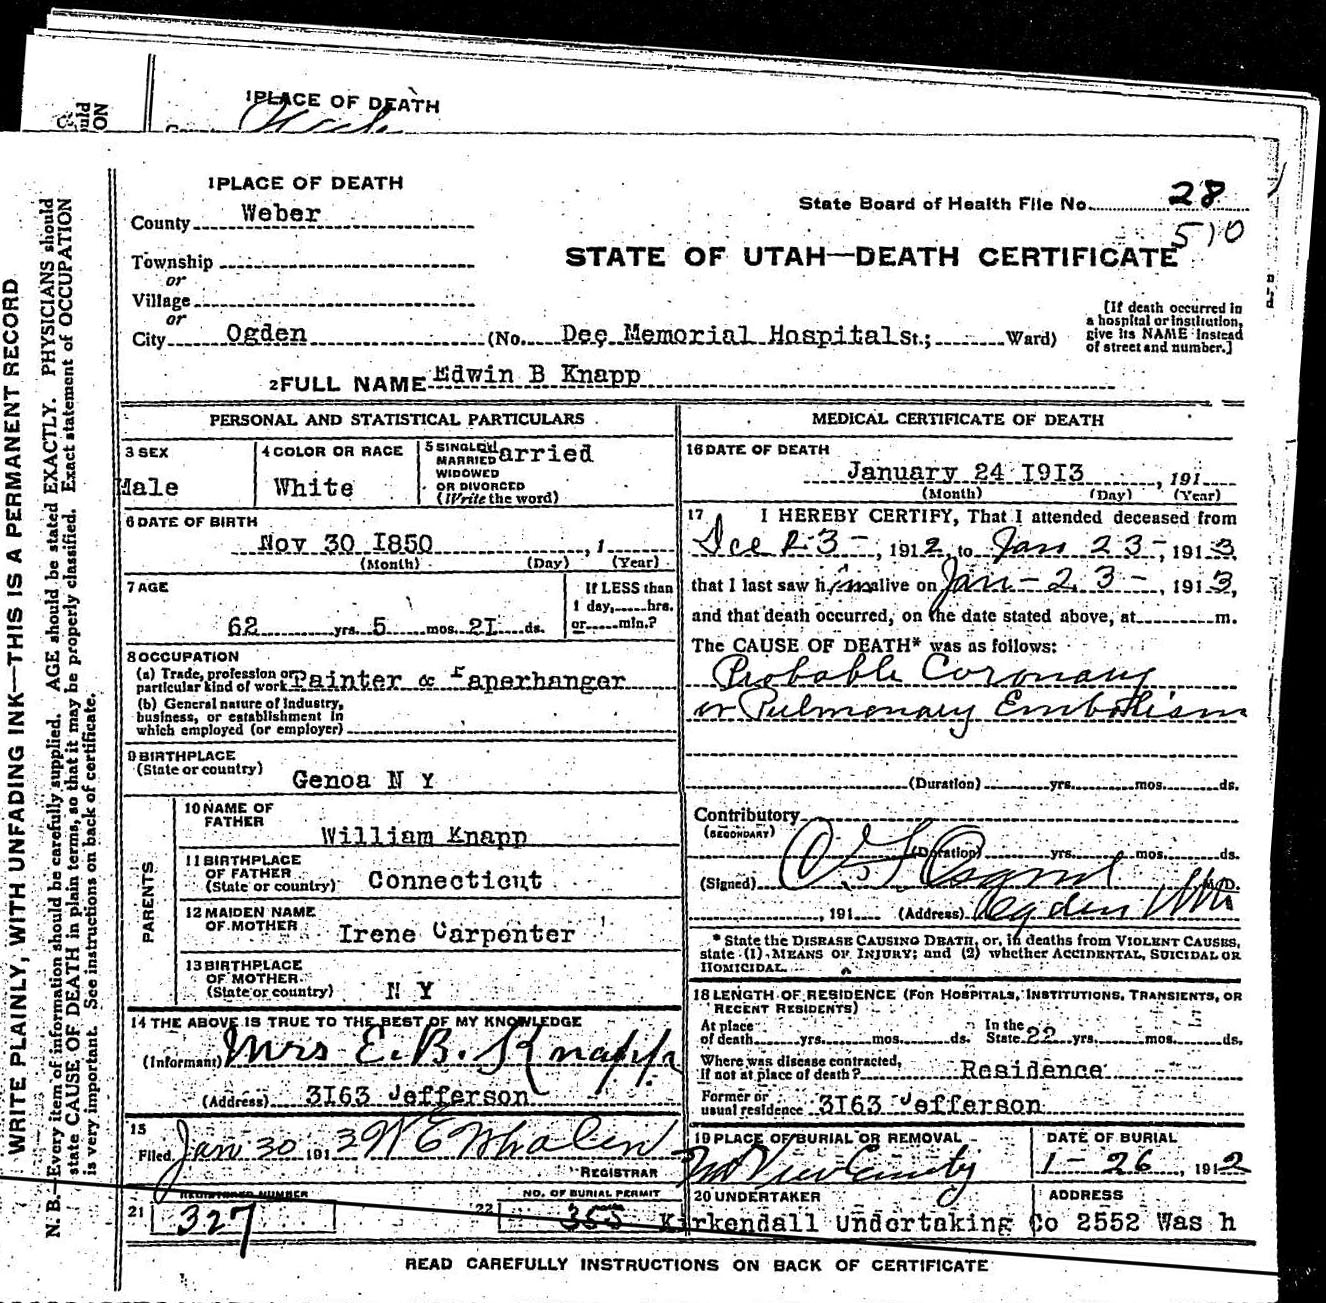 1 PLACE OF DEATH
1 PLACE OF DEATH
County Weber
State Board of Health File No. 28
510
STATE OF UTAH—DEATH CERTIFICATE
Township
or
Village
or
City Ogden (No. Dee Memorial Hospital St.; Ward)
[If death occurred in
a hospital or institution,
give its NAME instead
of street and number.]
2 FULL NAME Edwin B Knapp
PERSONAL AND STATISTICAL PARTICULARS
3 SEX
Male
4 COLOR OR RACE
White
5 SINGLE Married
MARRIED
WIDOWED
OR DIVORCED
(Write the word)
6 DATE OF BIRTH
Nov 30 1850 , 1
(Month) (Day) (Year)
7 AGE
62 yrs. 5 mos. 21 ds.
If LESS than
1 day, hrs.
or min.?
8 OCCUPATION
(a) Trade, profession or
particular kind of work Painter & Paperhanger
(b) General nature of industry,
business, or establishment in
which employed (or employer)
9 BIRTHPLACE
(State or country)
Genoa N Y
PARENTS
10 NAME OF
FATHER
William Knapp
11 BIRTHPLACE
OF FATHER
(State or country) Connecticut
12 MAIDEN NAME
OF MOTHER
Irene Carpenter
13 BIRTHPLACE
OF MOTHER
(State or country) N Y
14 THE ABOVE IS TRUE TO THE BEST OF MY KNOWLEDGE
(Informant) Mrs E. B. Knapp
(Address) 3163 Jefferson
15
Filed Jan 30 1913 W E Whalen
REGISTRAR
REGISTERED NUMBER
21 327
NO. OF BURIAL PERMIT
22 355
MEDICAL CERTIFICATE OF DEATH
16 DATE OF DEATH
January 24 1913 , 191
(Month) (Day) (Year)
17 I HEREBY CERTIFY, That I attended deceased from
Dec 23-, 1912, to Jan 23-, 1913,
that I last saw him alive on Jan-23-, 1913,
and that death occurred, on the date stated above, at m.
The CAUSE OF DEATH* was as follows:
Probable Coronary
or Pulmonary Embolism
(Duration) yrs. mos. ds.
Contributory
(SECONDARY)
(Duration) yrs. mos. ds.
(Signed) M.D.
, 191 (Address) Ogden Utah
* State the DISEASE CAUSING DEATH, or, in deaths from VIOLENT CAUSES,
state (1) MEANS OF INJURY; and (2) whether ACCIDENTAL, SUICIDAL OR
HOMICIDAL.
18 LENGTH OF RESIDENCE (FOR HOSPITALS, INSTITUTIONS, TRANSIENTS, OR
RECENT RESIDENTS)
At place
of death yrs. mos. ds.
In the
State 22 yrs. mos. ds.
Where was disease contracted,
if not at place of death? Residence
Former or
usual residence 3163 Jefferson
19 PLACE OF BURIAL OR REMOVAL
DATE OF BURIAL
1-26, 1912
20 UNDERTAKER
ADDRESS
Kirkendall Undertaking Co 2552 Was h
READ CAREFULLY INSTRUCTIONS ON BACK OF CERTIFICATE
WRITE PLAINLY, WITH UNFADING INK—THIS IS A PERMANENT RECORD
N. B.—Every item of information should be carefully supplied. AGE should be stated EXACTLY. PHYSICIANS should
state CAUSE OF DEATH in plain terms, so that it may be properly classified. Exact statement of OCCUPATION
is very important. See instructions on back of certificate.